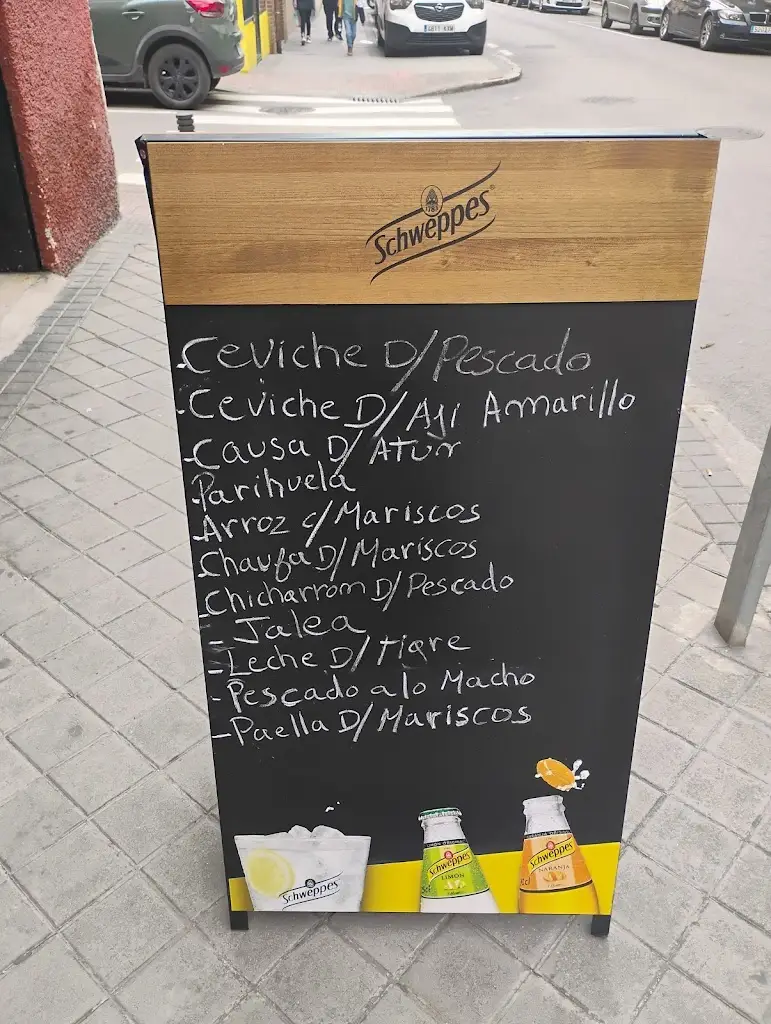 Schweppes
-Ceviche D/Pescado
-Ceviche D/Aji Ammarillo
-Causa D/Atun
-Parihuela
-Arroz c/Mariscos
-Chaufa D/Mariscos
-Chicharrom D/Pescado
-Jalea
-Leche D/tigre
-Pescado a lo Macho
-Paella D/Mariscos
Schweppes
Schweppes
LIMÓN
Schweppes
NARANJA